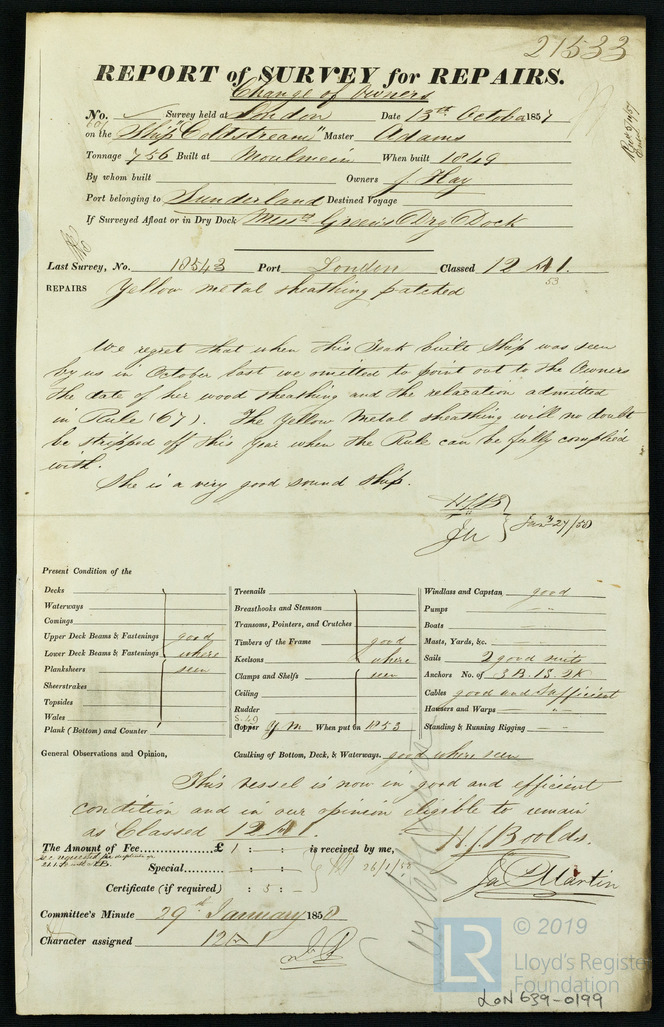 21533
REPORT of SURVEY for REPAIRS.
Change of Owners
No. Survey held at London Date 13th October 1857
on the Ship "Coldstream" Master Adams
Tonnage 756 Built at Moulmein When built 1849
By whom built Owners J. Hay
Port belonging to Sunderland Destined Voyage
If Surveyed Afloat or in Dry Dock Messrs Green's Dry Dock
Last Survey, No. 18543 Port London Classed 12 A1.
53
REPAIRS Yellow metal sheathing patched
We regret that when this Teak built Ship was seen
by us in October last we omitted to point out to the Owners
the date of her wood sheathing and the relaxation admitted
in Rule (67). The Yellow Metal sheathing will no doubt
be stripped off this Year when the Rule can be fully complied
with.
She is a very good sound ship.
HJB
JM
Jany 27/58
Present Condition of the
Decks
Waterways
Comings
Upper Deck Beams & Fastenings good
Lower Deck Beams & Fastenings where
Planksheers seen
Sheerstrakes
Topsides
Wales
Plank (Bottom) and Counter
Treenails
Breasthooks and Stemson
Transoms, Pointers, and Crutches
Timbers of the Frame good
Keelsons where
Clamps and Shelfs seen
Ceiling
Rudder
Copper Y M When put on 1853
Windlass and Capstan good
Pumps
Boats
Masts, Yards, &c.
Sails 2 good suits
Anchors No. of 3 B. 1 S. 2 K
Cables good and Sufficient
Hawsers and Warps
Standing & Running Rigging
General Observations and Opinion,
Caulking of Bottom, Deck, & Waterways. good where seen
This vessel is now in good and efficient
condition and in our opinion eligible to remain
as Classed 12 A1.
The Amount of Fee £ 1 : - : - is received by me,
H. J. Boolds.
Special - : - : -
26/1/58
Jas Martin
Certificate (if required) : 5 : -
Committee's Minute 29th January 1858
Character assigned 12 A 1
LR
© 2019
Lloyd's Register
Foundation
LON 639-0199